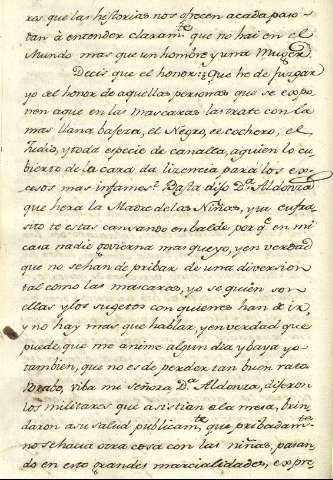 res que las historias nos ofrecen acada paso
tan à entender claramte que no hai en el
Mundo mas que un hombre y una Muger.
Decis que el honor: Que he de juzgar
yo del honor de aquellas personas que se expo
nen aque en las Mascaras las trate con la
mas llana bajeza, el Negro, el cochero, el
Judio, y toda especie de canalla, aquien lo cu
bierto de la cara da lizencia para los ex
cesos mas infames? Basta dijo Da Aldonza
que hera la Madre de las Niñas, y
sito te estas cansando en balde por q. en mi
casa nadie govierna mas que yo, y en verdad
que no se han de pribar de una diversion
tal como las mascaras, yo se quién son
ellas y los sugetos con quienes han de ir,
y no hay mas que hablar, y en verdad que
puede, que me anime algun dia y baya yo
tambien, que no es de perder tan buen rato
Brabo, viba mi Señora Da Aldonza, dijeron
los militares que asistian a la mesa, brin
daron a su salud publicamte que pribadamte
no se hacia otra cosa con las niñas, pasan
do en esto grandes marcialidades, expre